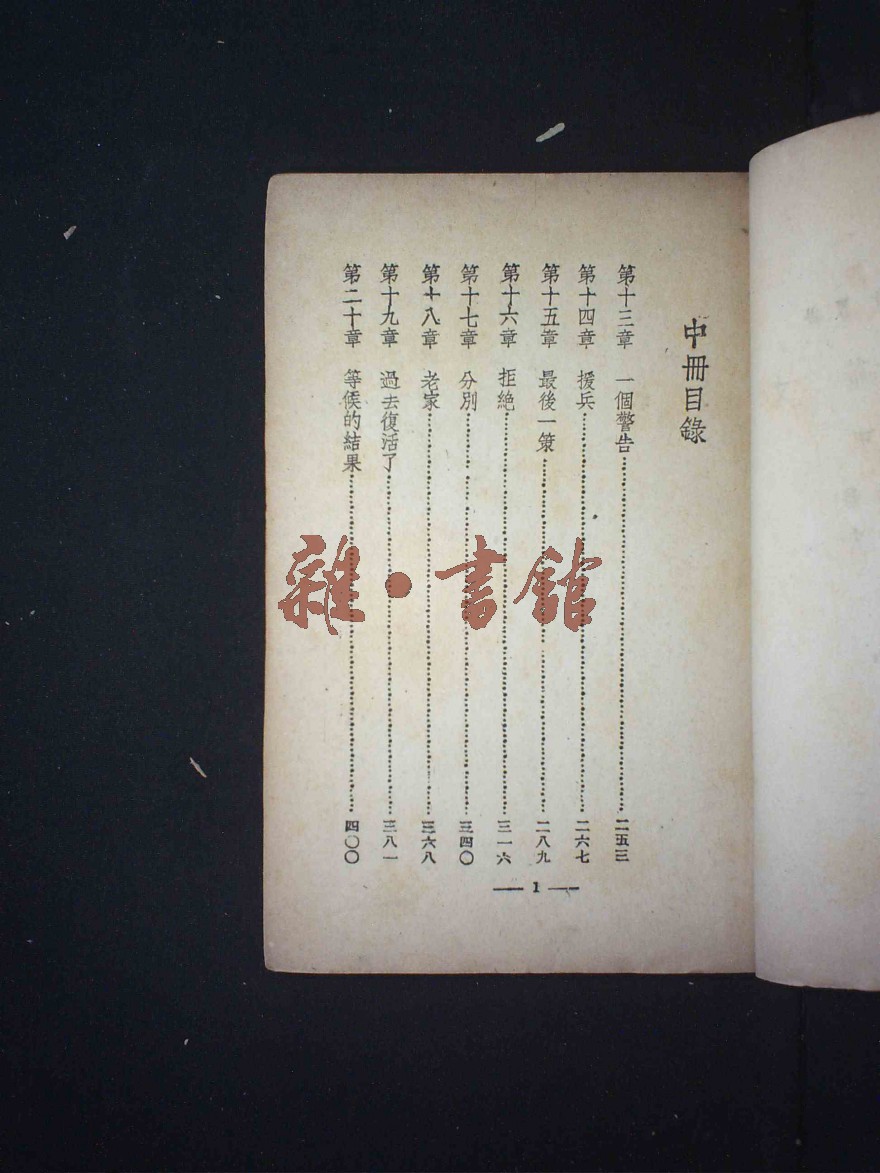 中冊目錄
第十三章 一個警告……二五三
第十四章 援兵……二六七
第十五章 最後一策……二八九
第十六章 拒絕……三一六
第十七章 分別……三四〇
第十八章 老家……三六八
第十九章 過去復活了……三八一
第二十章 等候的結果……四〇〇
— 1 —
雜·書館